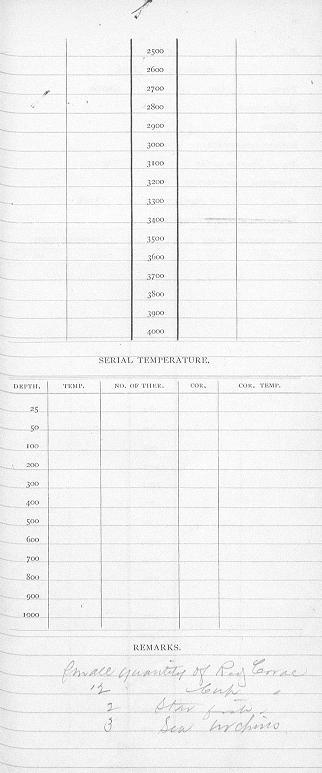 2500
2600
2700
2800
2900
3000
3100
3200
3300
3400
3500
3600
3700
3800
3900
4000
SERIAL TEMPERATURE.
DEPTH. TEMP. NO. OF THER. COR. COR. TEMP.
25
50
100
200
300
400
500
600
700
800
900
1000
REMARKS.
Small quantity of Red Corral
12 Cup "
2 Star fish
3 Sea Urchins